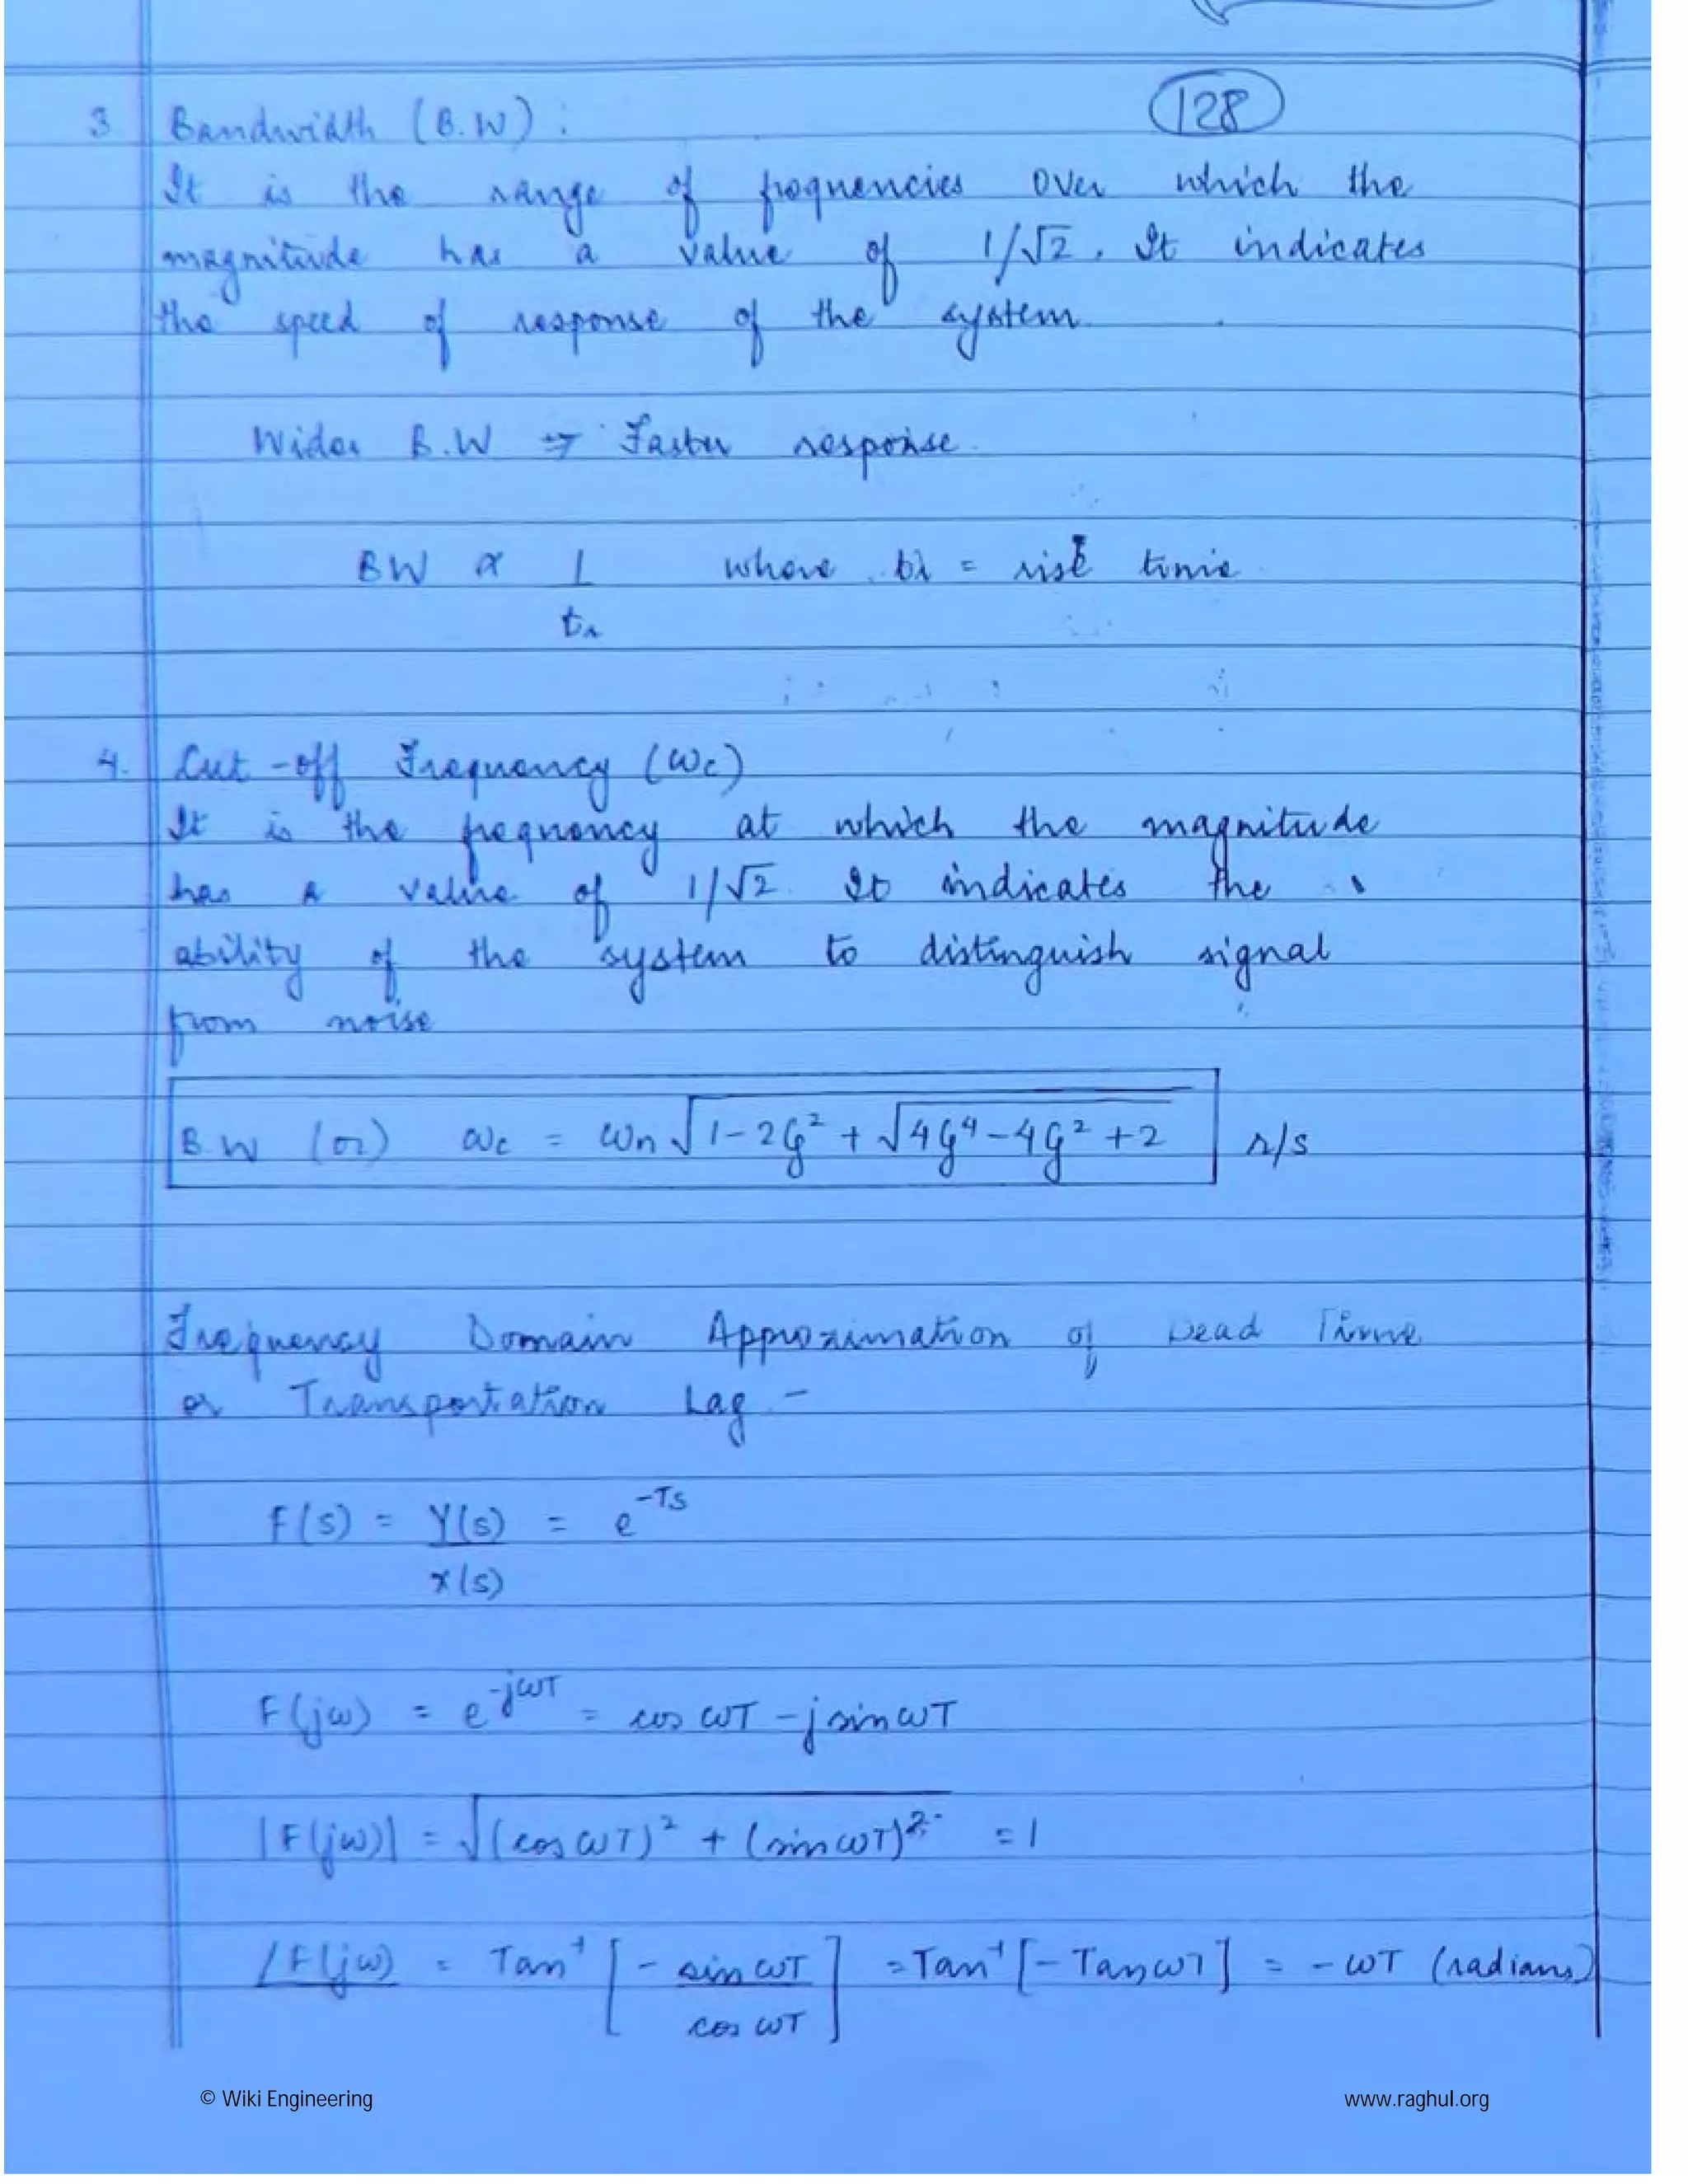 128
3. Bandwidth (B.W) :
It is the range of frequencies over which the
magnitude has a value of 1/√2. It indicates
the speed of response of the system.
Wider B.W ⇒ Faster response.
BW ∝ 1/tr where tr = rise time.
4. Cut-off Frequency (ωc)
It is the frequency at which the magnitude
has a value of 1/√2. It indicates the
ability of the system to distinguish signal
from noise
B.W (or) ωc = ωn √(1-2ζ² + √(4ζ⁴-4ζ²+2)) r/s
Frequency Domain Approximation of Dead Time
or Transportation Lag -
F(s) = Y(s)/X(s) = e^-Ts
F(jω) = e^-jωT = cos ωT - j sin ωT
|F(jω)| = √((cos ωT)² + (sin ωT)²) = 1
∠F(jω) = Tan⁻¹ [- sin ωT / cos ωT] = Tan⁻¹ [- Tan ωT] = - ωT (radians)
© Wiki Engineering www.raghul.org